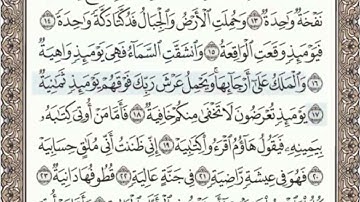 نَفْخَةٌ وَٰحِدَةٌ ١٣ وَحُمِلَتِ ٱلْأَرْضُ وَٱلْجِبَالُ فَدُكَّتَا دَكَّةً وَٰحِدَةً ١٤
فَيَوْمَئِذٍ وَقَعَتِ ٱلْوَاقِعَةُ ١٥ وَٱنشَقَّتِ ٱلسَّمَآءُ فَهِىَ يَوْمَئِذٍ وَاهِيَةٌ
١٦ وَٱلْمَلَكُ عَلَىٰٓ أَرْجَآئِهَا وَيَحْمِلُ عَرْشَ رَبِّكَ فَوْقَهُمْ يَوْمَئِذٍ ثَمَٰنِيَةٌ
١٧ يَوْمَئِذٍ تُعْرَضُونَ لَا تَخْفَىٰ مِنكُمْ خَافِيَةٌ ١٨ فَأَمَّا مَنْ أُوتِىَ كِتَٰبَهُۥ
بِيَمِينِهِۦ فَيَقُولُ هَآؤُمُ ٱقْرَءُوا۟ كِتَٰبِيَهْ ١٩ إِنِّى ظَنَنتُ أَنِّى مُلَٰقٍ حِسَابِيَهْ
٢٠ فَهُوَ فِى عِيشَةٍ رَّاضِيَةٍ ٢١ فِى جَنَّةٍ عَالِيَةٍ ٢٢ قُطُوفُهَا دَانِيَةٌ ٢٣